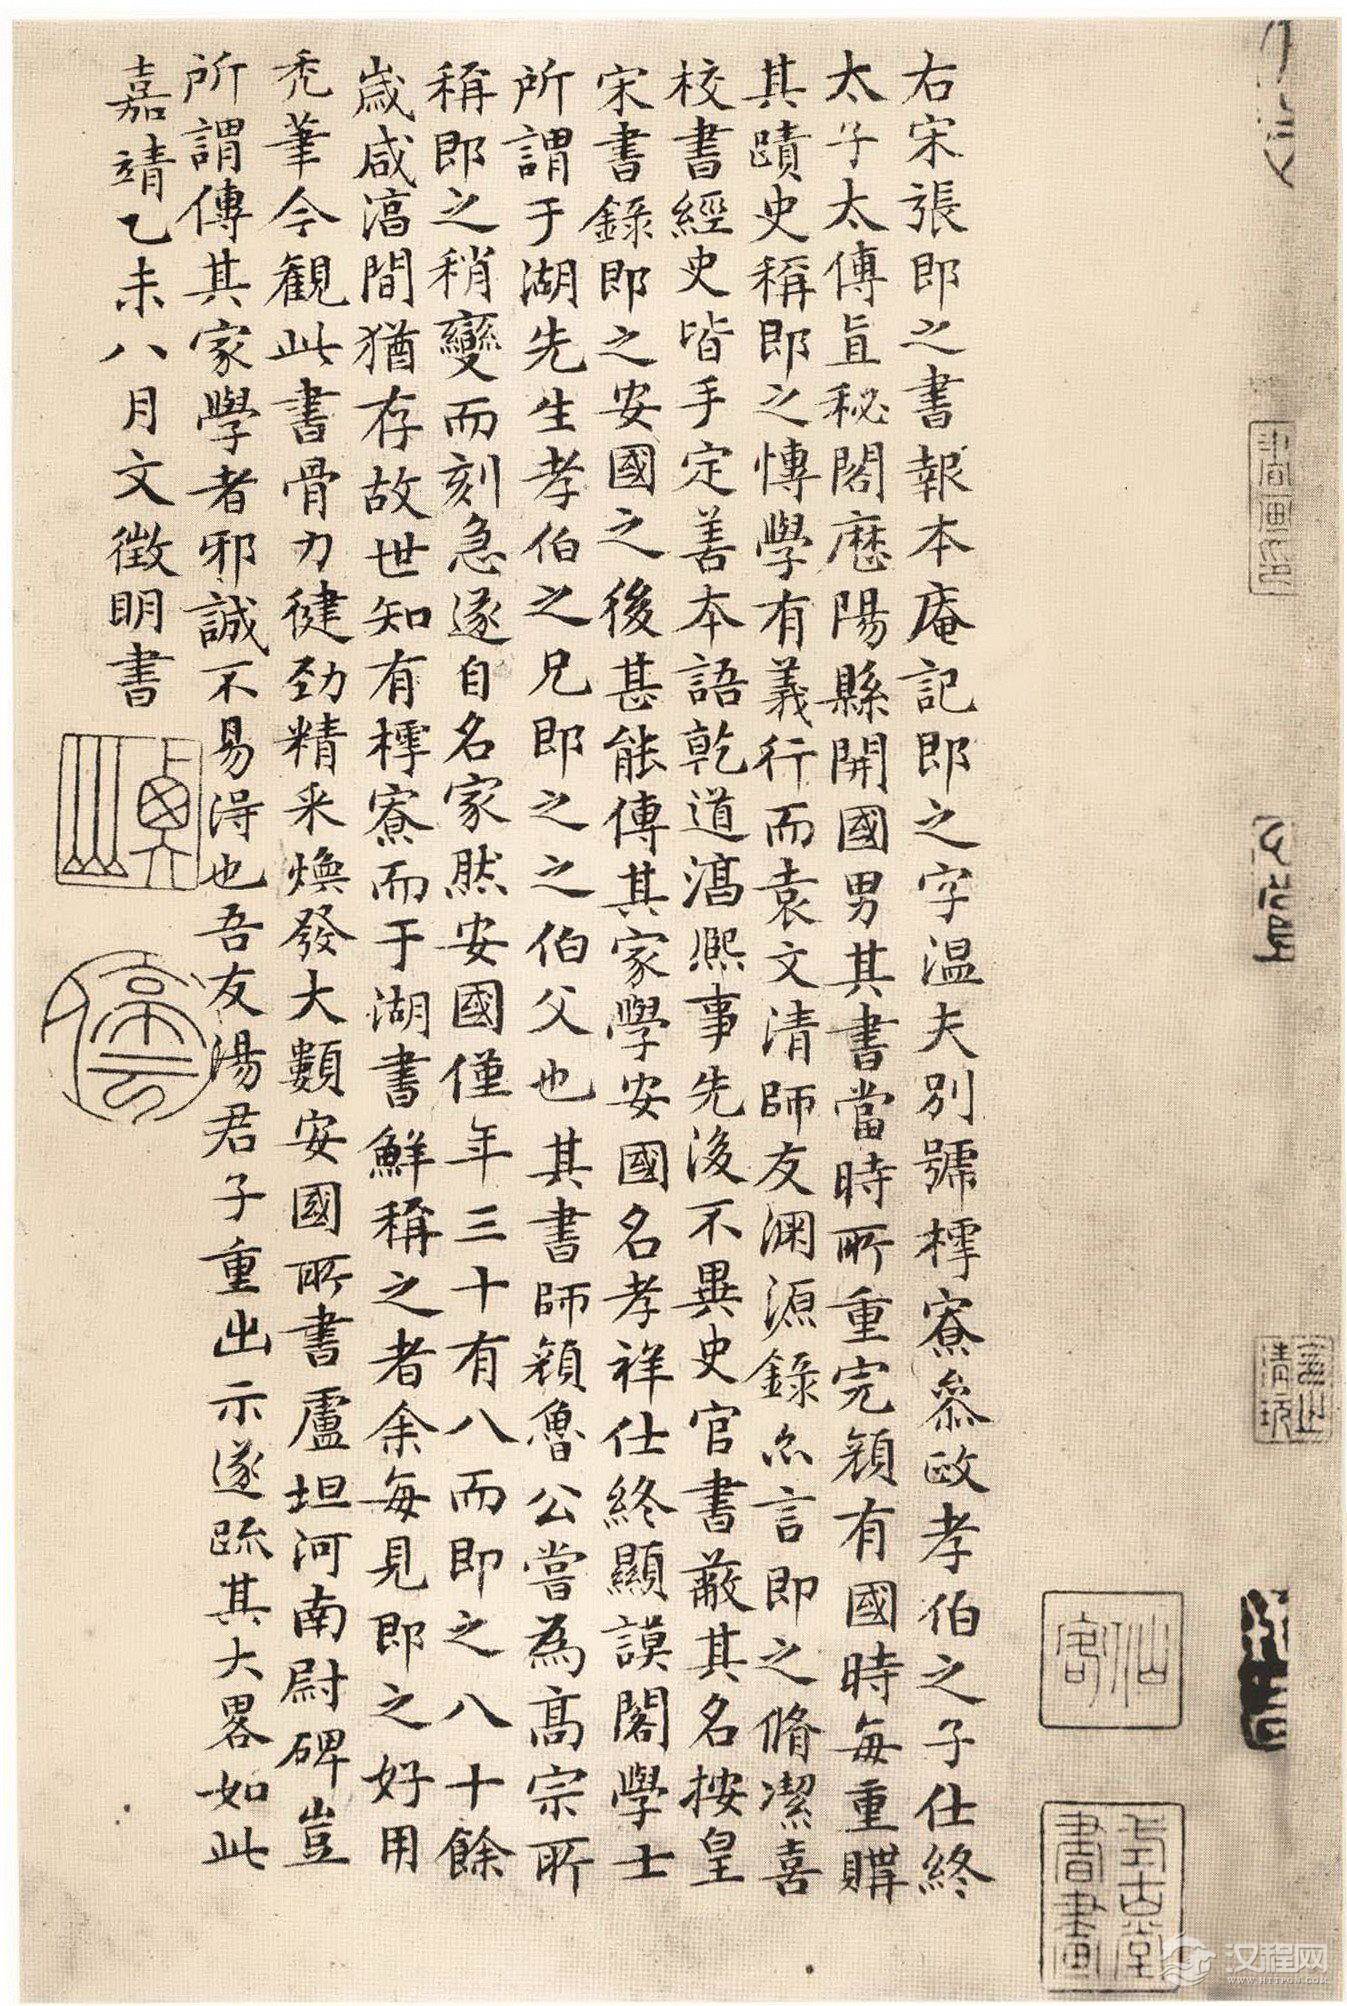 右宋張即之書報本庵記即之字温夫别號樗寮叅政孝伯之子仕終
太子太傅直秘閣歷陽縣開國男其書當時所重完顔有國時每重購
其蹟史稱即之慱學有義行而袁文清師友淵源錄亦言即之脩潔喜
校書經史皆手定善本語乾道淳熙事先後不異史官書蔽其名按皇
宋書錄即之安國之後甚能傳其家學安國名孝祥仕終顯謨閣學士
所謂于湖先生孝伯之兄即之之伯父也其書師顔魯公嘗為高宗所
稱即之稍變而刻急遂自名家然安國僅年三十有八而即之八十餘
歲咸淳間猶存故世知有樗寮而于湖書鮮稱之者余每見即之好用
禿筆今觀此書骨力健勁精采煥發大類安國所書盧坦河南尉碑豈
所謂傳其家學者邪誠不易得也吾友湯君子重出示遂疏其大畧如此
嘉靖乙未八月文徵明書
停雲
仙客
式古堂書畫
清玩
汉程网
WWW.HTTPCN.COM